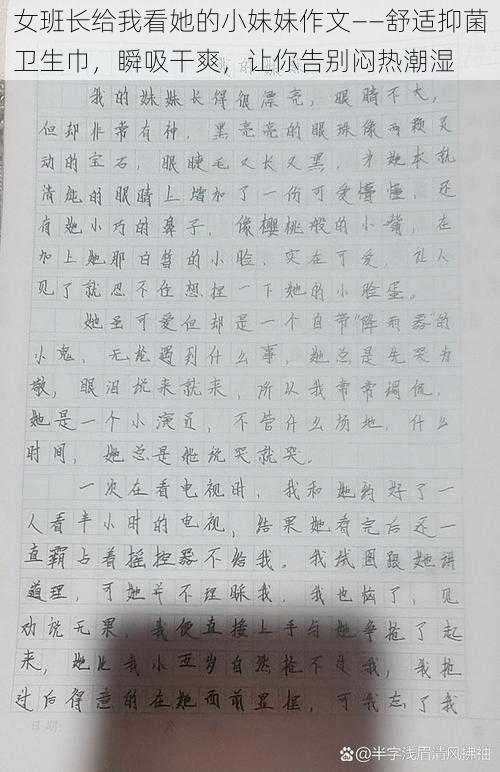 女班长给我看她的小妹妹作文——舒适抑菌
卫生巾，瞬吸干爽，让你告别闷热潮湿
我的妹妹长得很漂亮，眼睛不大，
但却非常有神，黑亮亮的眼珠像两颗灵
动的宝石，眼睫毛又长又黑，才她本就
清纯的眼睛上增加了一份可爱懵懂，还
有她小巧的鼻子，像樱桃般的小嘴，在
加上她那白皙的小脸，实在可爱，让人
见了就忍不住想捏一下她的小脸蛋。
她虽可爱但却是一个自带“降雨器”的
小鬼，无论遇到什么事，她总是先哭为
敬，眼泪说来就来，所以我常常调侃，
她是一个小演员，不管什么场地，什么
时间，她总是她说哭就哭。
一次在看电视时，我和她约好了一
人看半小时的电视，结果她看完后还一
直霸占着摇控器不给我。我试图跟她讲
道理，可她并不理睬我，我也恼了，见
劝说无果，我便直接上手与她争抢了起
来，她比我小五岁自然抢不过我，我抢
过后得意的在她面前显摆，可我忘了我
日期：
@半字浅眉清风拂袖